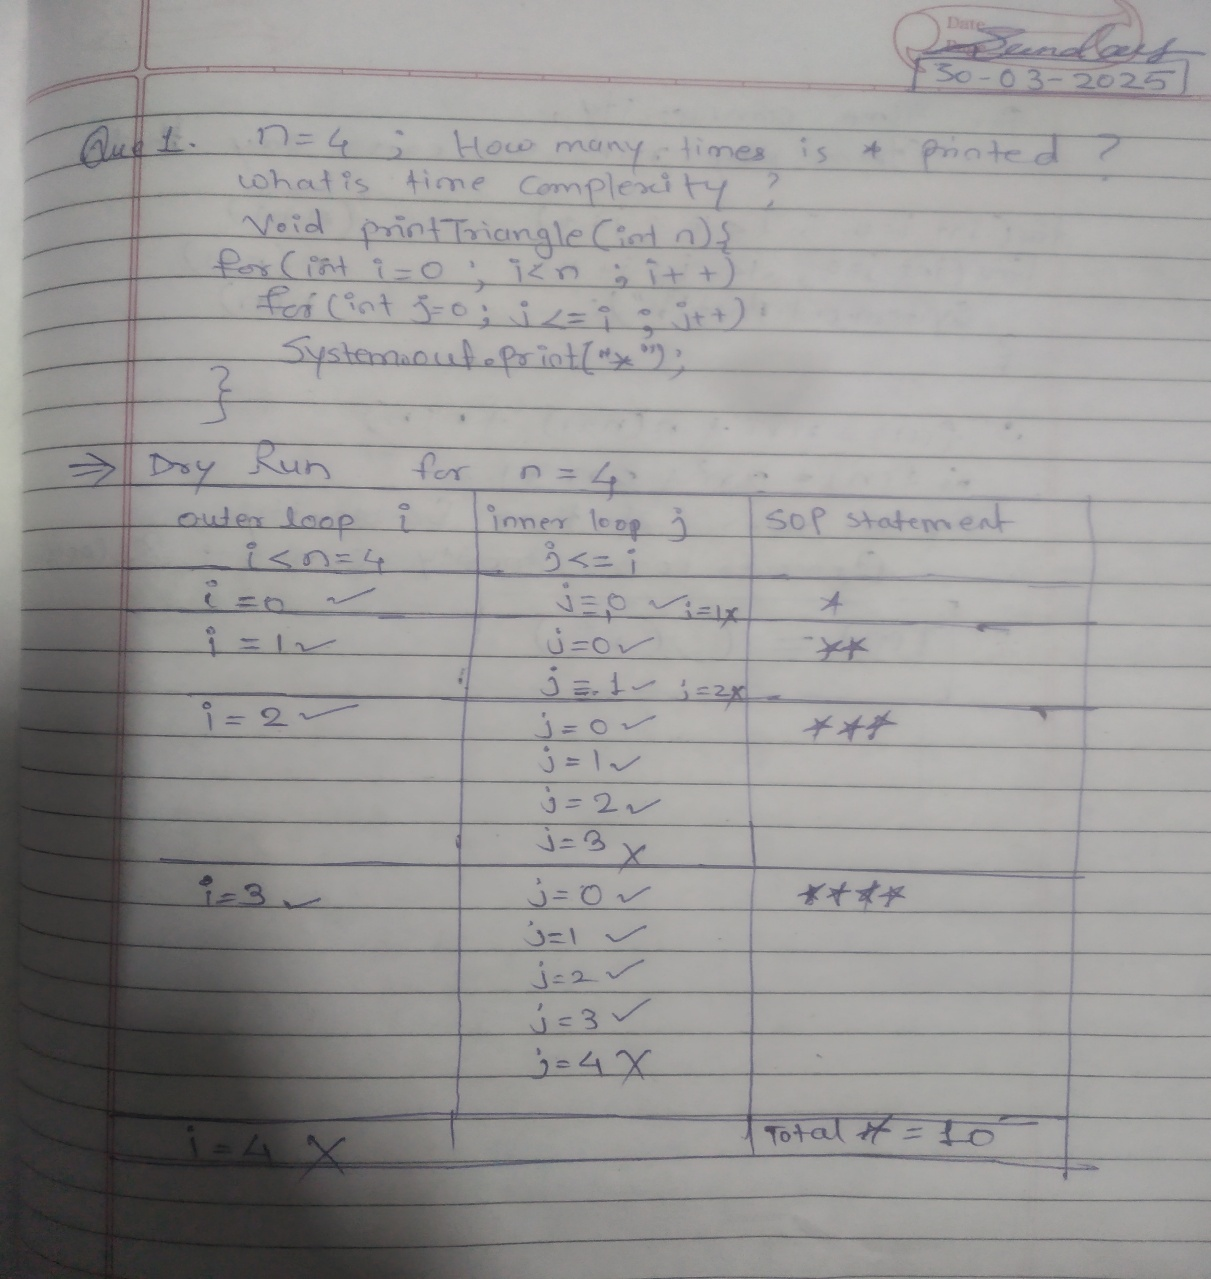 Date
Sunday
30-03-2025
Que 1. n=4 ; How many times is * printed ?
what is time complexity ?
Void printTriangle(int n){
for(int i=0 ; i<n ; i++)
for(int j=0; j<=i ; j++)
System.out.print("*");
}
⇒ Dry Run for n=4
outer loop i inner loop j SOP statement
i<n=4 j<=i
i=0 ✓ j=0 ✓ j=1x *
i=1 ✓ j=0 ✓ **
j=1 ✓ j=2x
i=2 ✓ j=0 ✓ ***
j=1 ✓
j=2 ✓
j=3 X
i=3 ✓ j=0 ✓ ****
j=1 ✓
j=2 ✓
j=3 ✓
j=4 X
i=4 X Total * = 10